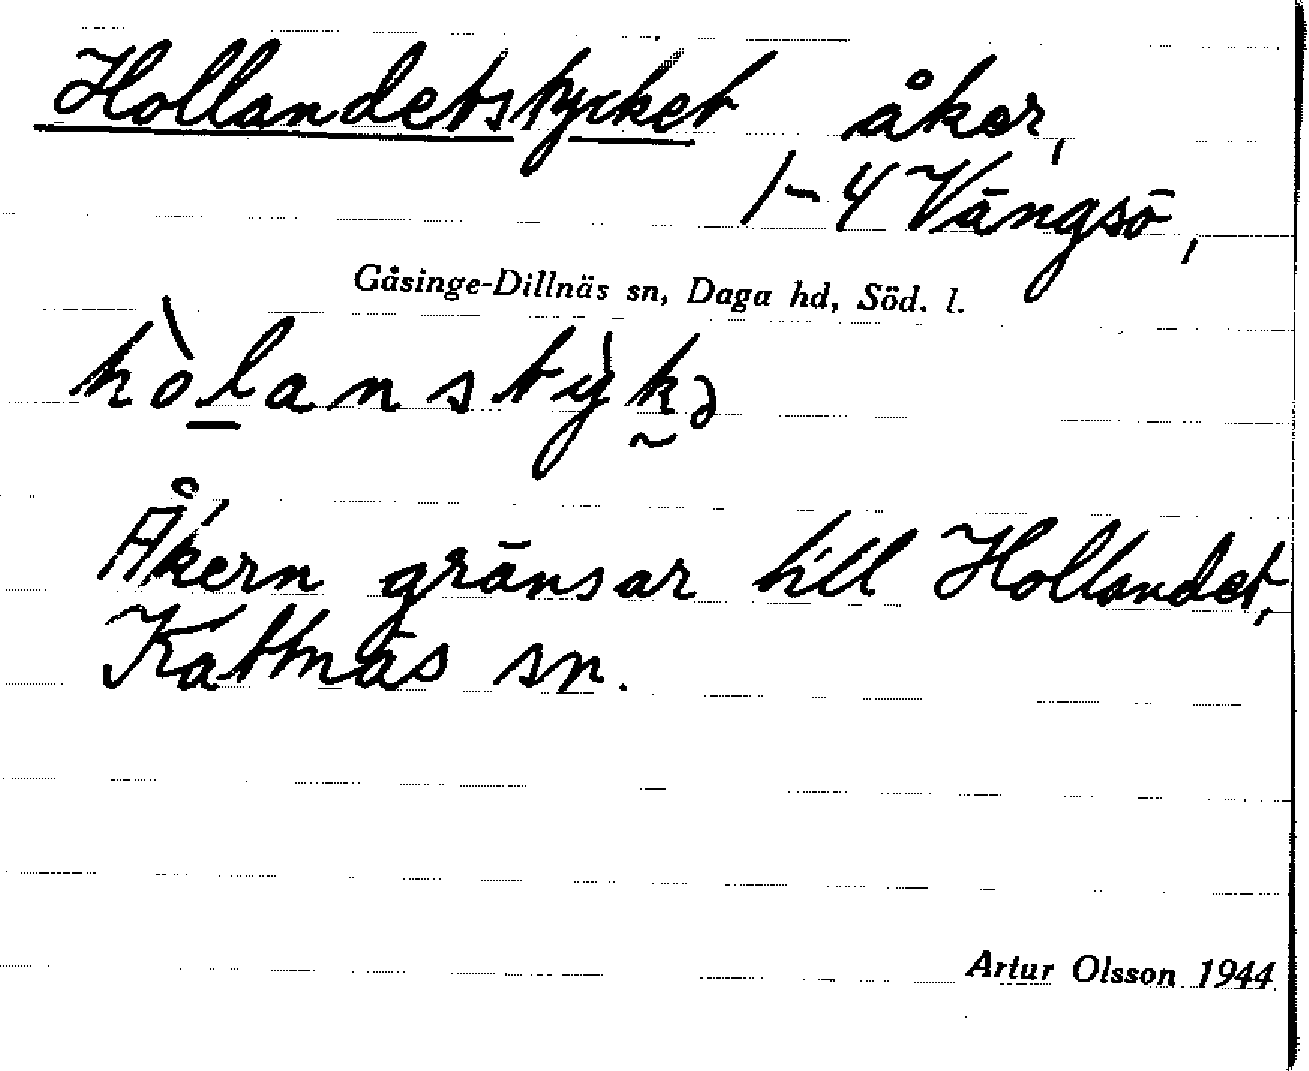 Hollandetstycket åker,
1-4 Vängsö,
Gåsinge-Dillnäs sn, Daga hd, Söd. l.
hòlanstỳkə
Åkern gränsar till Hollandet,
Kattnäs sn.
Artur Olsson 1944